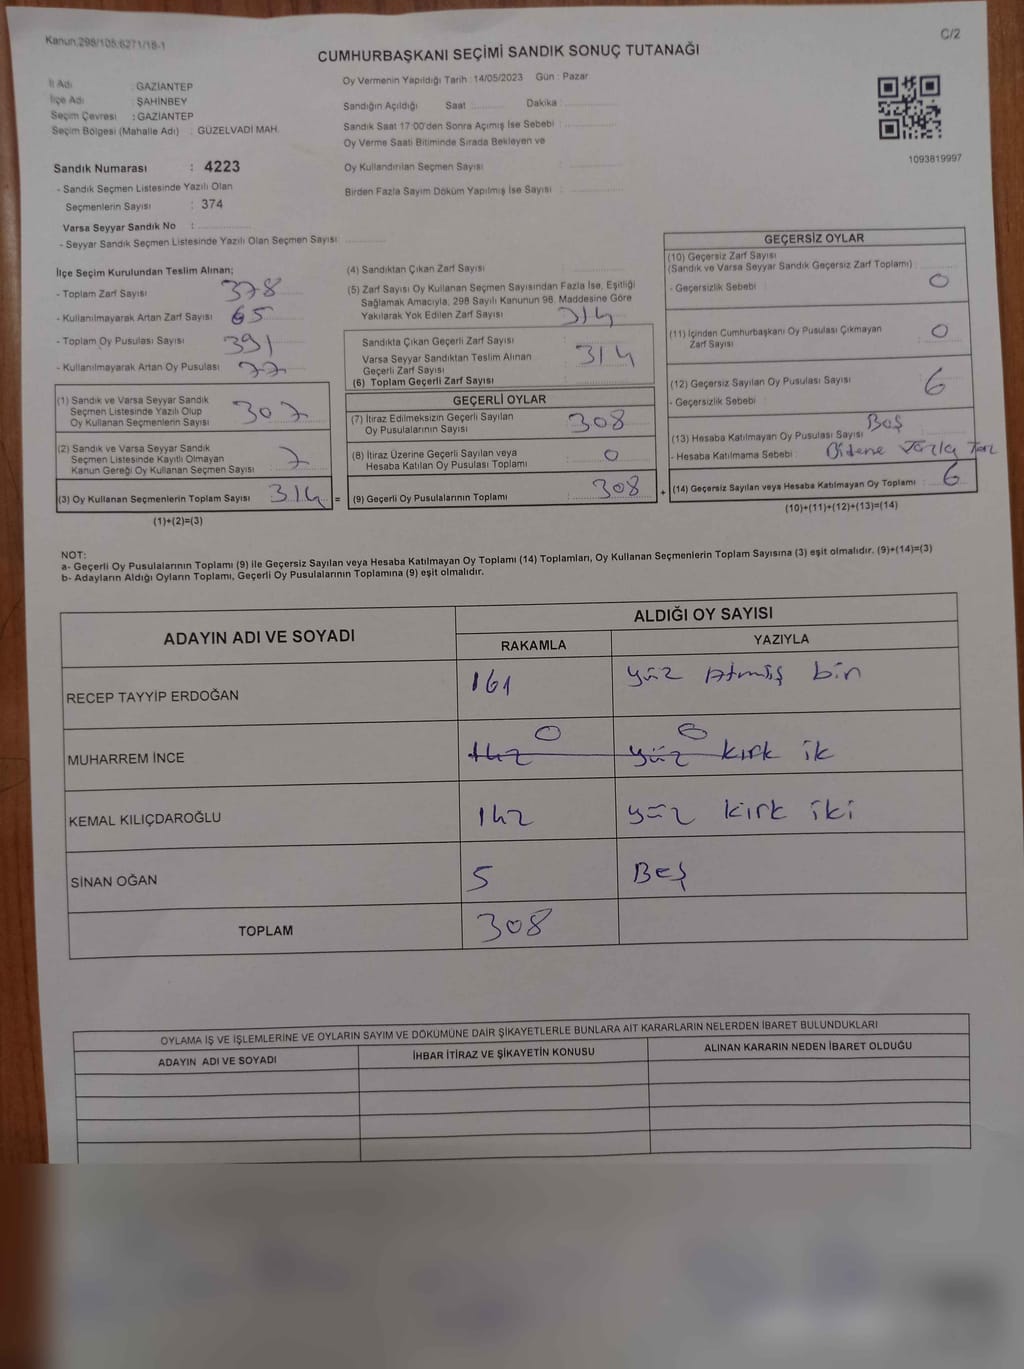 Kanun.298/105.6271/18-1
C/2
CUMHURBAŞKANI SEÇİMİ SANDIK SONUÇ TUTANAĞI
İl Adı : GAZİANTEP
İlçe Adı : ŞAHİNBEY
Seçim Çevresi : GAZİANTEP
Seçim Bölgesi (Mahalle Adı) : GÜZELVADİ MAH.
Oy Vermenin Yapıldığı Tarih : 14/05/2023 Gün : Pazar
Sandığın Açıldığı Saat Dakika :
Sandık Saat 17:00'den Sonra Açımış İse Sebebi :
Oy Verme Saati Bitiminde Sırada Bekleyen ve
Oy Kullandırılan Seçmen Sayısı :
Birden Fazla Sayım Döküm Yapılmış İse Sayısı :
1093819997
Sandık Numarası : 4223
- Sandık Seçmen Listesinde Yazılı Olan
Seçmenlerin Sayısı : 374
Varsa Seyyar Sandık No :
- Seyyar Sandık Seçmen Listesinde Yazılı Olan Seçmen Sayısı :
İlçe Seçim Kurulundan Teslim Alınan;
- Toplam Zarf Sayısı 378
- Kullanılmayarak Artan Zarf Sayısı : 65
- Toplam Oy Pusulası Sayısı 391
- Kullanılmayarak Artan Oy Pusulası 77
(1) Sandık ve Varsa Seyyar Sandık
Seçmen Listesinde Yazılı Olup
Oy Kullanan Seçmenlerin Sayısı : 307
(2) Sandık ve Varsa Seyyar Sandık
Seçmen Listesinde Kayıtlı Olmayan
Kanun Gereği Oy Kullanan Seçmen Sayısı : 7
(3) Oy Kullanan Seçmenlerin Toplam Sayısı : 314 =
(1)+(2)=(3)
(4) Sandıktan Çıkan Zarf Sayısı :
(5) Zarf Sayısı Oy Kullanan Seçmen Sayısından Fazla İse, Eşitliği
Sağlamak Amacıyla, 298 Sayılı Kanunun 98. Maddesine Göre
Yakılarak Yok Edilen Zarf Sayısı : 314
Sandıkta Çıkan Geçerli Zarf Sayısı
Varsa Seyyar Sandıktan Teslim Alınan
Geçerli Zarf Sayısı 314
(6) Toplam Geçerli Zarf Sayısı
GEÇERLİ OYLAR
(7) İtiraz Edilmeksizin Geçerli Sayılan
Oy Pusulalarının Sayısı : 308
(8) İtiraz Üzerine Geçerli Sayılan veya
Hesaba Katılan Oy Pusulası Toplamı : 0
(9) Geçerli Oy Pusulalarının Toplamı : 308 +
GEÇERSİZ OYLAR
(10) Geçersiz Zarf Sayısı
(Sandık ve Varsa Seyyar Sandık Geçersiz Zarf Toplamı) :
- Geçersizlik Sebebi : 0
(11) İçinden Cumhurbaşkanı Oy Pusulası Çıkmayan
Zarf Sayısı : 0
(12) Geçersiz Sayılan Oy Pusulası Sayısı : 6
- Geçersizlik Sebebi :
(13) Hesaba Katılmayan Oy Pusulası Sayısı : Boş
- Hesaba Katılmama Sebebi :
(14) Geçersiz Sayılan veya Hesaba Katılmayan Oy Toplamı : 6
(10)+(11)+(12)+(13)=(14)
NOT:
a- Geçerli Oy Pusulalarının Toplamı (9) ile Geçersiz Sayılan veya Hesaba Katılmayan Oy Toplamı (14) Toplamları, Oy Kullanan Seçmenlerin Toplam Sayısına (3) eşit olmalıdır. (9)+(14)=(3)
b- Adayların Aldığı Oyların Toplamı, Geçerli Oy Pusulalarının Toplamına (9) eşit olmalıdır.
ADAYIN ADI VE SOYADI
ALDIĞI OY SAYISI
RAKAMLA YAZIYLA
RECEP TAYYİP ERDOĞAN 161 yüz Atmış bin
MUHARREM İNCE 142 0 yüz kırk ik 0
KEMAL KILIÇDAROĞLU 142 yüz kırk iki
SİNAN OĞAN 5 Beş
TOPLAM 308
OYLAMA İŞ VE İŞLEMLERİNE VE OYLARIN SAYIM VE DÖKÜMÜNE DAİR ŞİKAYETLERLE BUNLARA AİT KARARLARIN NELERDEN İBARET BULUNDUKLARI
ADAYIN ADI VE SOYADI İHBAR İTİRAZ VE ŞİKAYETİN KONUSU ALINAN KARARIN NEDEN İBARET OLDUĞU